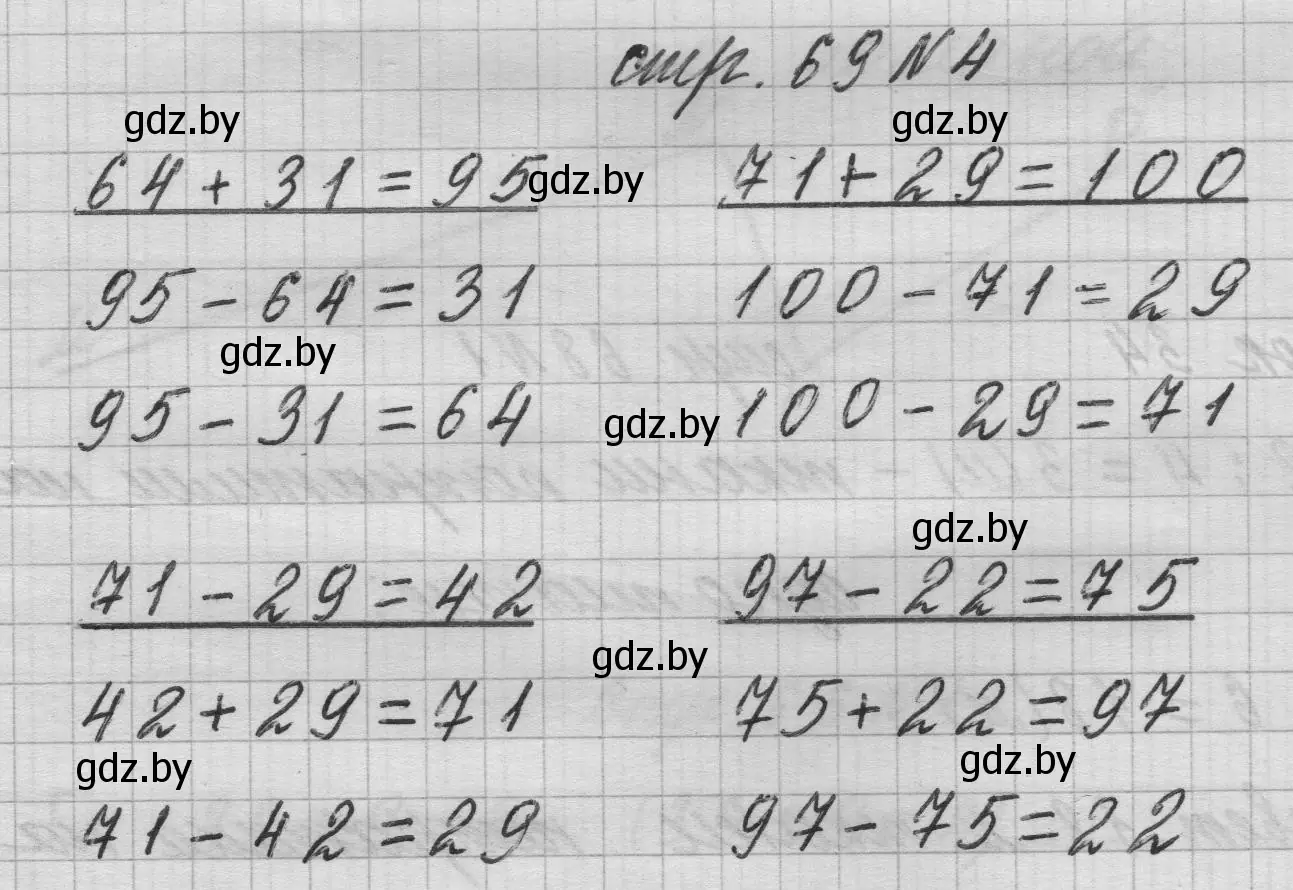 стр. 69 N 4
gdz.by gdz.by
64 + 31 = 95 gdz.by 71 + 29 = 100
95 - 64 = 31 100 - 71 = 29
gdz.by
95 - 31 = 64 gdz.by 100 - 29 = 71
gdz.by
71 - 29 = 42 97 - 22 = 75
gdz.by
42 + 29 = 71 75 + 22 = 97
gdz.by gdz.by
71 - 42 = 29 97 - 75 = 22